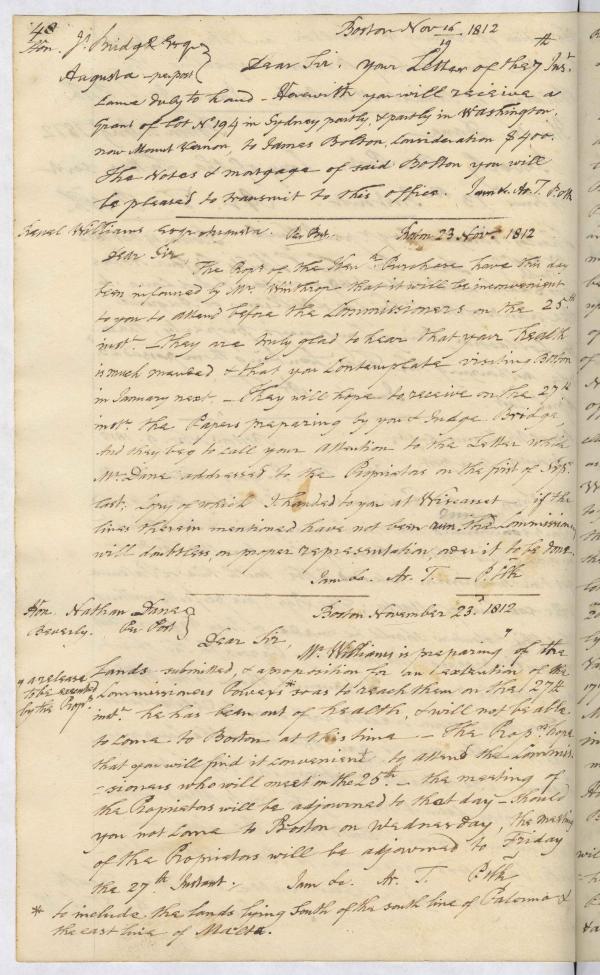 48
Hon. Js. Bridge Esqr
Augusta - per post
Boston Nov 16/19 1812
Dear Sir. Your Letter of the 7th Inst.
Came duly to hand - Herewith you will receive a
Grant of Lot No 194 in Sydney partly, & partly in Washington,
now Mount Vernon, to James Bolton, Consideration $400.
The Notes & mortgage of said Bolton you will
be pleased to transmit to this office. I am &c. Ar. T.
Williams Esqr Augusta. Per Post. Boston 23 Novr. 1812
Dear Sir,
The Propr of the Kenn. Purchase have this day
been informed by Mr. Winthrop that it will be inconvenient
to you to attend before the Commissioners on the 25th
inst. - They are truly glad to hear that your health
is much mended & that you Contemplate visiting Boston
in January next. - They will hope to receive on the 27th
inst. the Papers preparing by you & Judge Bridge,
And they beg to call your Attention to the Letter which
Mr. Dane addressed to the Proprietors on the first of
last, Copy of which I handed to you at Wiscasset - if the
lines therein mentioned have not been run, the Commissioners
will doubtless, on proper representation, order it to be done.
I am &c. Ar. T. - P. Clk
Hon Nathan Dane
Beverly. Per Post
Boston November 23d. 1812
Dear Sir,
Mr. Williams is preparing " of the
Lands submitted, & a proposition for an extention of the
" a release
to be executed
by the Propr.
Commissioners Powers * so as to reach them on the 27th
inst. he has been out of health, & will not be able
to Come to Boston at this time - The Proprs hope
that you will find it convenient to attend the Commis-
-sioners who will meet on the 25th - the meeting of
the Proprietors will be adjourned to that day - Should
you not Come to Boston on Wednesday, the meeting
of the Proprietors will be adjourned to Friday
the 27th Instant. I am &c. Ar. T. P. Clk
* to include the Lands lying South of the south line of Palermo &
the east line of Malta.